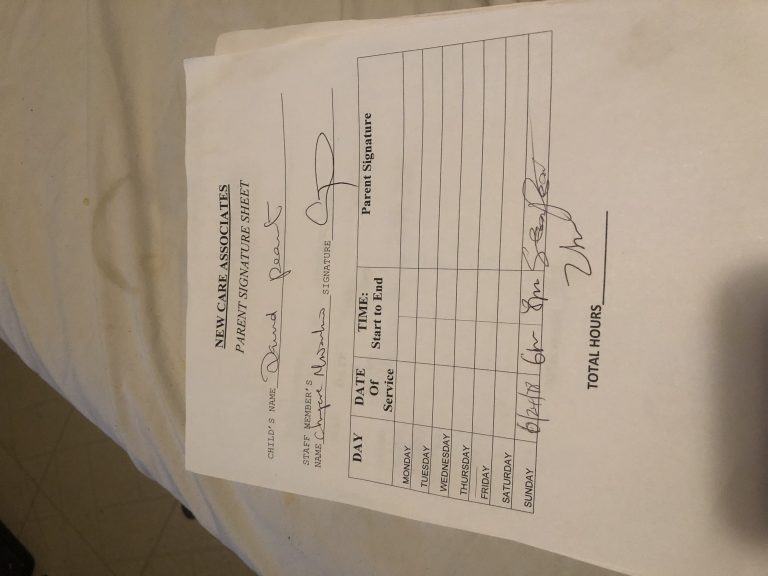 NEW CARE ASSOCIATES
PARENT SIGNATURE SHEET
CHILD'S NAME David
STAFF MEMBER'S
NAME SIGNATURE
DAY DATE Of Service TIME: Start to End Parent Signature
MONDAY
TUESDAY
WEDNESDAY
THURSDAY
FRIDAY
SATURDAY
SUNDAY 6/24/18 6pm 8pm
TOTAL HOURS 2hr